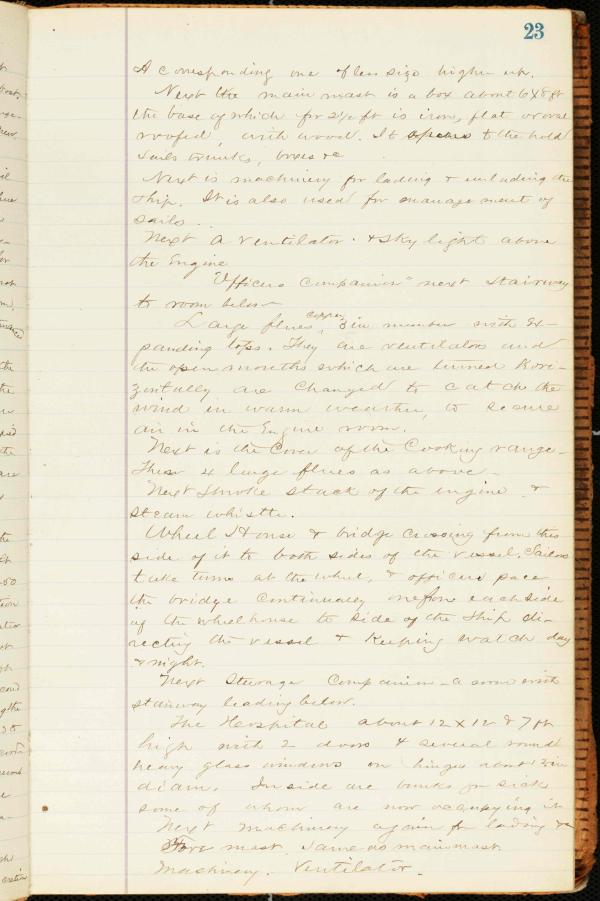 23
A corresponding one of less size higher up.
Next the main mast is a box about 6x8 ft
the base of which for 2½ ft is iron, flat
roofed, with wood. It opens to the hold
Sails trunks, boxes &c
Next is machinery for lading & unlading the
Ship. It is also used for management of
sails.
Next a ventilator. & Sky light above
the Engine
"Officers Companion" next Stairway
to room below
Large flues, copper, 3 in number with Ex-
panding tops. They are ventilators and
the open mouths which are turned Hori-
zontally are Changed to catch the
wind in warm weather, to secure
air in the Engine room.
Next is the Cover of the Cooking range.
Then 4 large flues as above.
Next Smoke Stack of the engine &
steam whistle.
Wheel House & bridge Crossing from this
side of it to both sides of the vessel. Sailors
take turns at the wheel, & officers pace
the bridge Continually one on each side
of the wheelhouse to side of the Ship di-
recting the vessel & Keeping watch day
& night.
Next Steerage Companion - a room with
stairway leading below.
The Hospital about 12 x 12 & 7 ft
high with 2 doors & several round
heavy glass windows on hinges about in
diam. Inside are bunks for sick
some of whom are now occupying it
Next machinery again for lading &c
Fore mast. Same as main mast
Machinery. Ventilator.